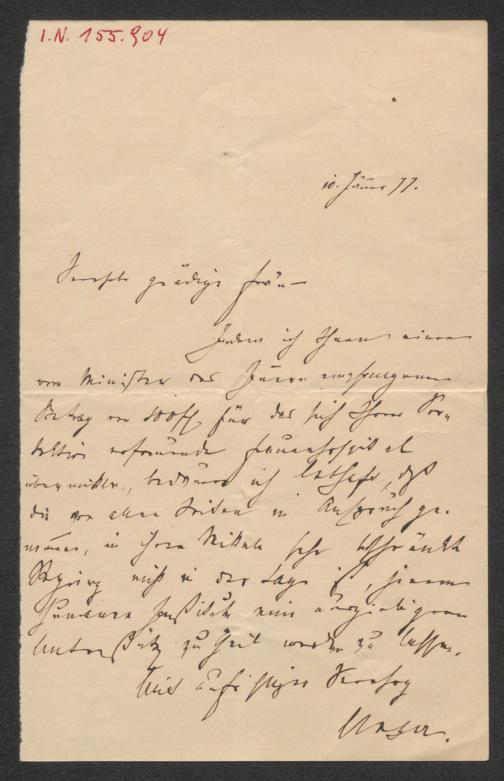 I.N. 155.904
10. Jänner 77.
Verehrte gnädige Frau
Indem ich Ihnen einen
vom Minister des Innern empfangenen
Betrag von 100 fl für das sich Ihrer Pro-
tektion erfreuende Frauenhospital
übermittle, bedaure ich lebhaft, daß
die von allen Seiten in Anspruch ge-
nommene, in ihren Mitteln sehr beschränkte
Regierung nicht in der Lage ist, jenem
humanen Institute eine ausgiebigere
Unterstützung zu Theil werden zu lassen.
Mit aufrichtiger Verehrung
Unger.